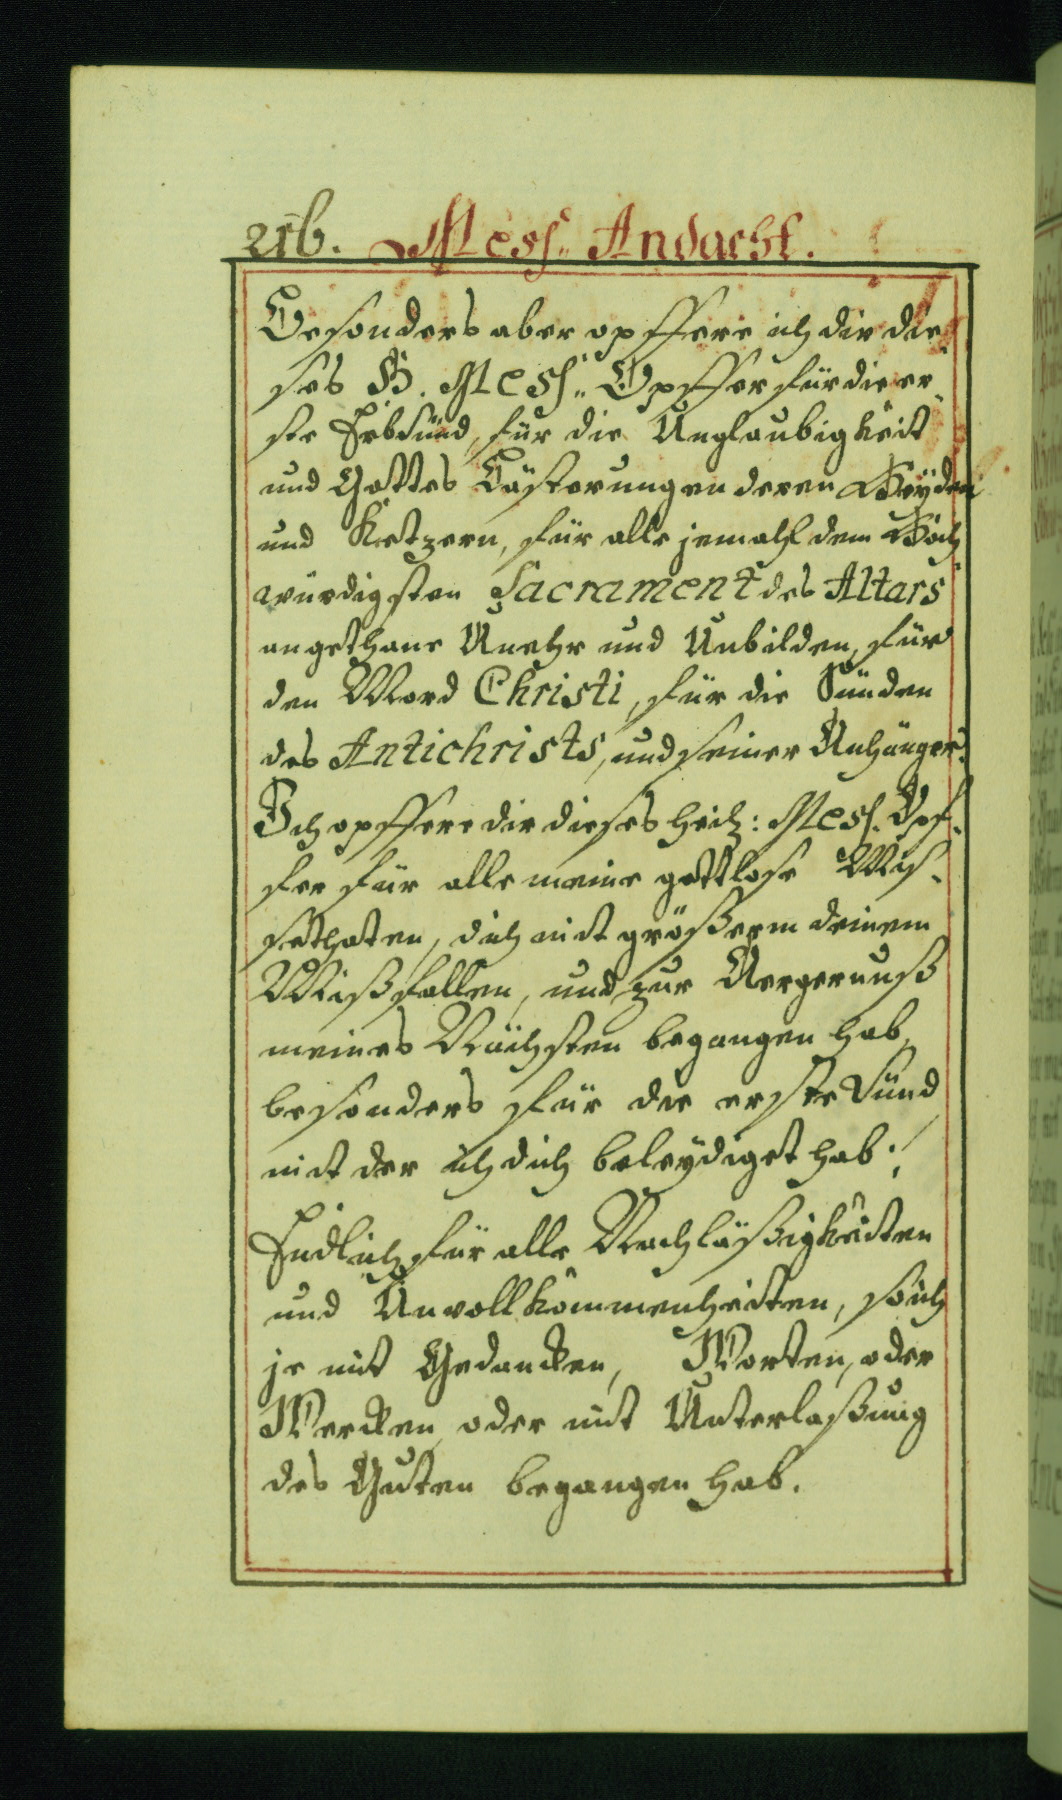 216. Mess- Andacht.
Besonders aber opffere ich dir die-
ses H. Mess- Opffer für die er-
ste Erbsünd, für die Unglaubigkeit
und Gottes Lästerungen deren Heyden
und Ketzern, für alle jemahl dem Hoch-
würdigsten Sacrament des Altars
angethane Unehr und Unbilden, für
den Mord Christi, für die Sünden
des Antichrists, und seiner Anhänger.
Ich opffere dir dieses heil: Mess. Opf-
fer für alle meine gottlose Mis-
sethaten, dich mit größerm deinem
Mißfallen, und zur Aergernuß
meines Nächsten begangen hab,
besonders für die erste Sünd
mit der ich dich beleydiget hab:
Endlich für alle Nachläßigkeiten
und Unvollkommenheiten, so ich
je mit Gedancken, Worten, oder
Wercken, oder mit Unterlaßung
des Guten begangen hab.